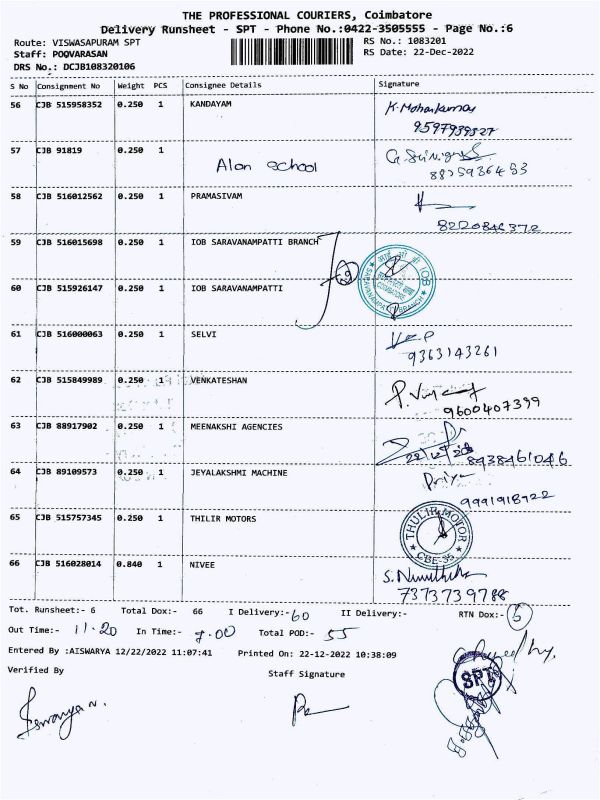 THE PROFESSIONAL COURIERS, Coimbatore
Delivery Runsheet - SPT - Phone No.:0422-3505555 - Page No.:6
Route: VISWASAPURAM SPT RS No.: 1083201
Staff: POOVARASAN RS Date: 22-Dec-2022
DRS No.: DCJB108320106
S No Consignment No Weight PCS Consignee Details Signature
56 CJB 515958352 0.250 1 KANDAYAM K. Mohankumar
9597939327
57 CJB 91819 0.250 1 Alan school
8825936453
58 CJB 516012562 0.250 1 PRAMASIVAM
8220846372
59 CJB 516015698 0.250 1 IOB SARAVANAMPATTI BRANCH
2
IOB SARAVANAMPATTI BRANCH COIMBATORE
60 CJB 515926147 0.250 1 IOB SARAVANAMPATTI
61 CJB 516000063 0.250 1 SELVI
9363143261
62 CJB 515849989 0.250 1 VENKATESHAN
9600407399
63 CJB 88917902 0.250 1 MEENAKSHI AGENCIES
22/12/20 8438461046
64 CJB 89109573 0.250 1 JEYALAKSHMI MACHINE Priya
9991918722
65 CJB 515757345 0.250 1 THILIR MOTORS THULIR MOTOR CBE-35
66 CJB 516028014 0.840 1 NIVEE S. Nivithika
7373739788
Tot. Runsheet:- 6 Total Dox:- 66 I Delivery:- 60 II Delivery:- RTN Dox:- 6
Out Time:- 11.20 In Time:- 8.00 Total POD:- 55
Entered By :AISWARYA 12/22/2022 11:07:41 Printed On: 22-12-2022 10:38:09
Verified By Staff Signature
SPT
Iswarya